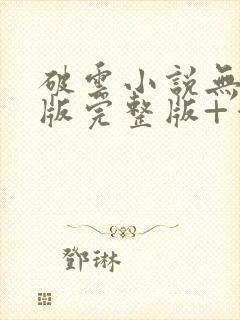 破雲小說無
版完整版+
鄧琳